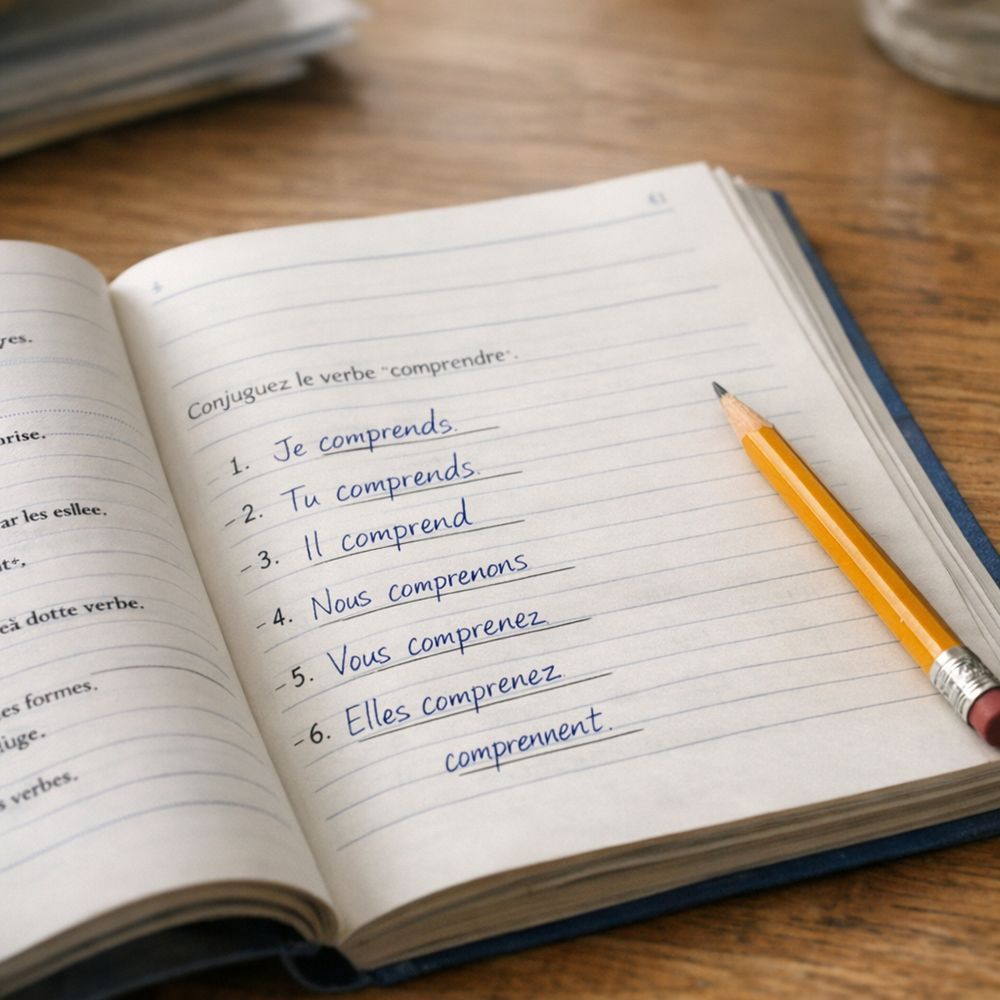 yes.
rise.
ar les esllee.
eă dotte verbe.
es formes.
iuge.
s verbes.
Conjuguez le verbe "comprendre".
1. Je comprends.
- 2. Tu comprends.
- 3. Il comprend
- 4. Nous comprenons
- 5. Vous comprenez
- 6. Elles comprenez
comprennent.